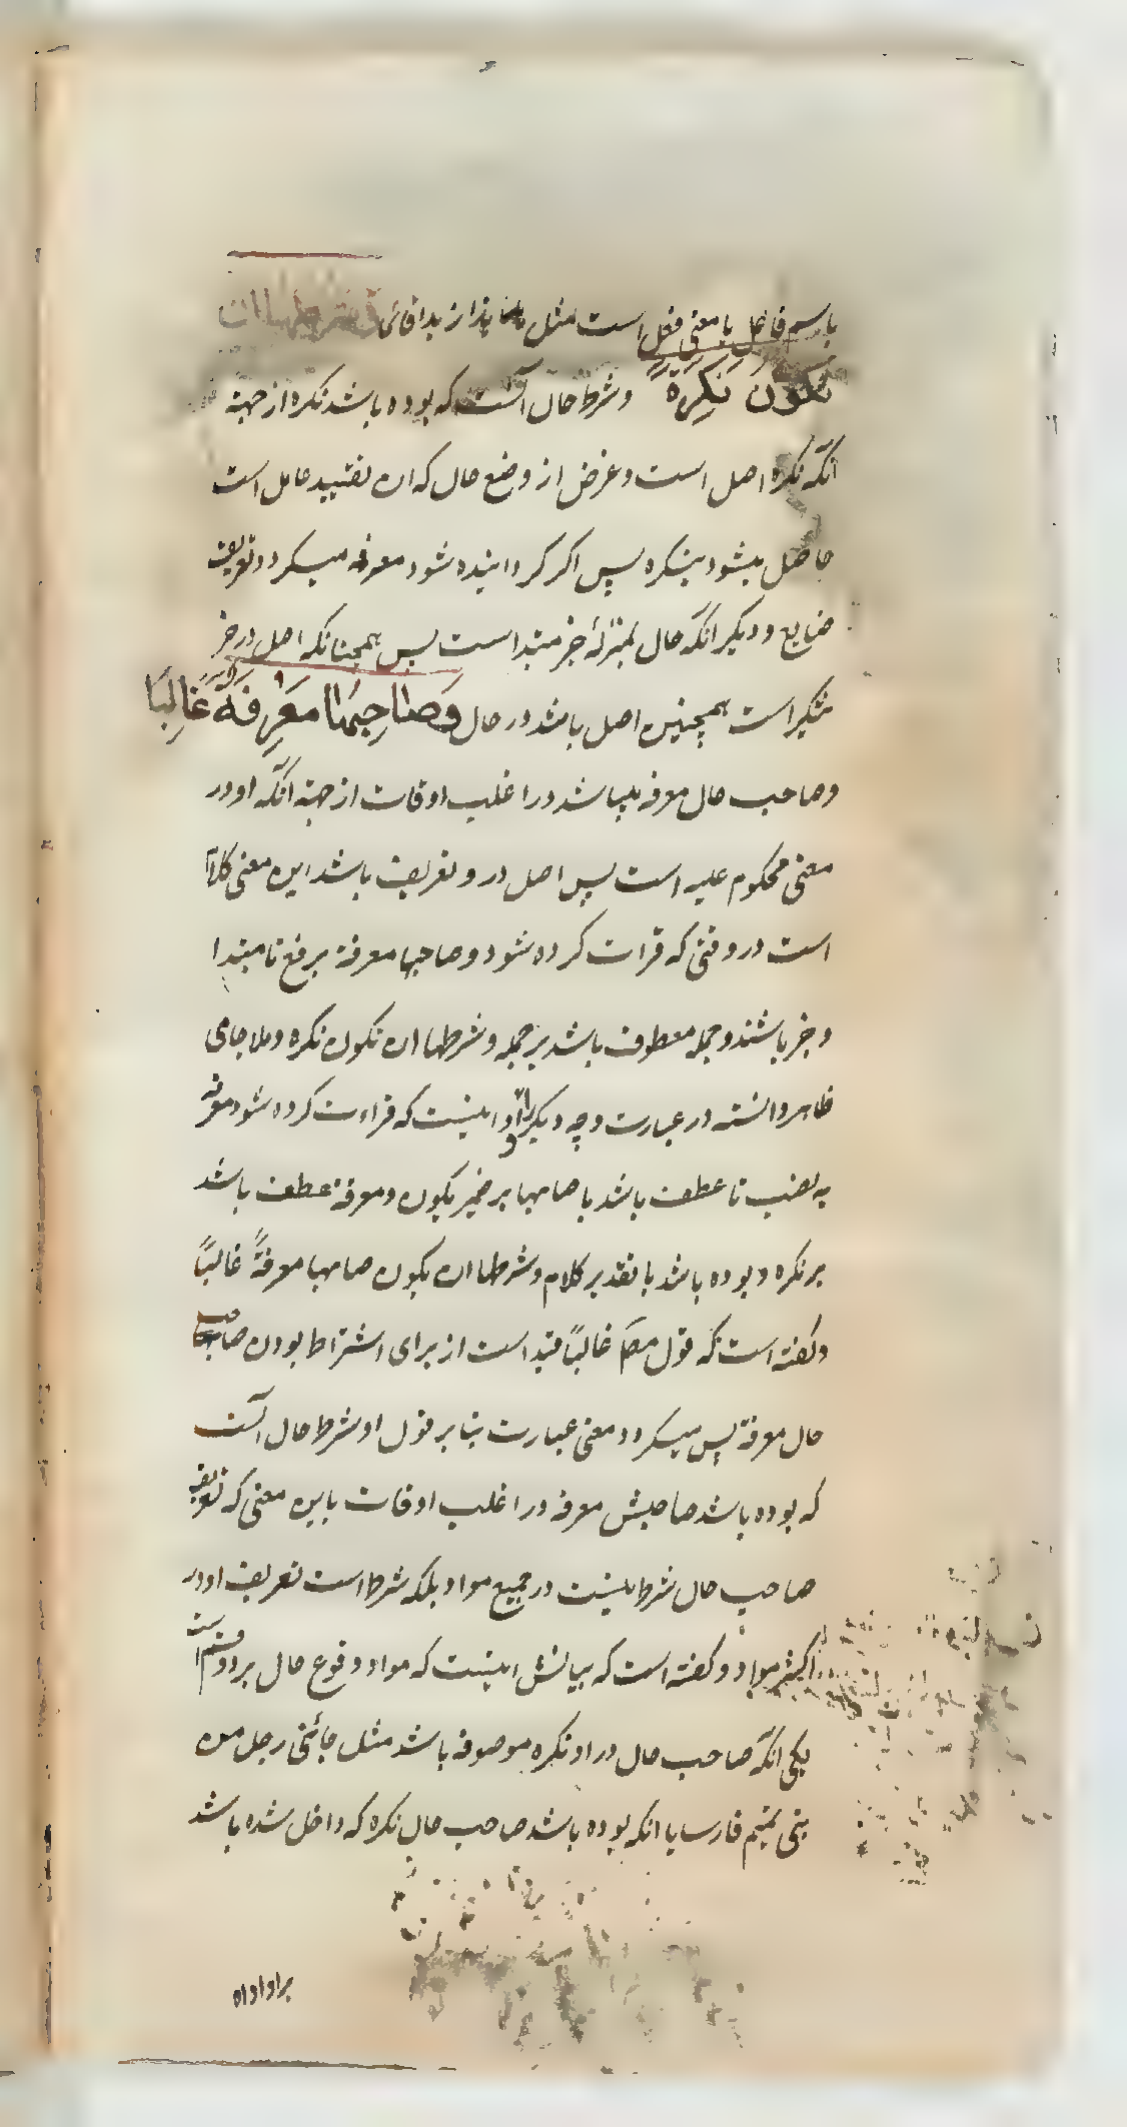 باسم فاعل یا معنی فعل است مثل هذا زید قائما و شرطها ان
تکون نکرة و شرط حال آنست که بوده باشد نکره از جهة
آنکه نکره اصل است و غرض از وضع حال که ان تقیید عامل است
حاصل میشود بنکره پس اکر کردانیده شود معرفه میکردد تعریف
ضایع و دیکر انکه حال بمنزلۀ خبر مبتدا است پس همچنانکه اصل در خبر
تنکیر است همچنین اصل باشد در حال وصاحبها معرفة غالبا
و صاحب حال معرفه میباشد در اغلب اوقات از جهة آنکه او در
معنی محکوم علیه است پس اصل در و تعریف باشد این معنی کلام
است در وقتی که قرات کرده شود و صاحبها معرفة برفع تا مبتدا
و خبر باشند و جمله معطوف باشد بر جمله و شرطها ان تکون نکره و ملا جامی
ظاهر دانسته در عبارت وجه دیکر را و او اینست که قراءت کرده شود معرفة
به نصب تا عطف باشد با صاحبها بر ضمیر یکون و معرفة عطف باشد
بر نکره و بوده باشد با تقدیر کلام و شرطها ان یکون صاحبها معرفةً غالبًا
و کفته است که قول مصّ غالبًا قید است از برای اشتراط بودن صاحب
حال معرفة پس میکردد معنی عبارت بنا بر قول او شرط حال آنست
که بوده باشد صاحبش معرفه در اغلب اوقات باین معنی که تعریف
صاحب حال شرط نیست در جمیع مواد بلکه شرط است تعریف او در
اکثر مواد و کفته است که بیانش اینست که مواد وقوع حال بر دو قسم است
یکی آنکه صاحب حال در او نکره موصوفه باشد مثل جائنی رجل من
بنی تمیم فارسا یا انکه بوده باشد صاحب حال نکره که داخل شده باشد
براواداه